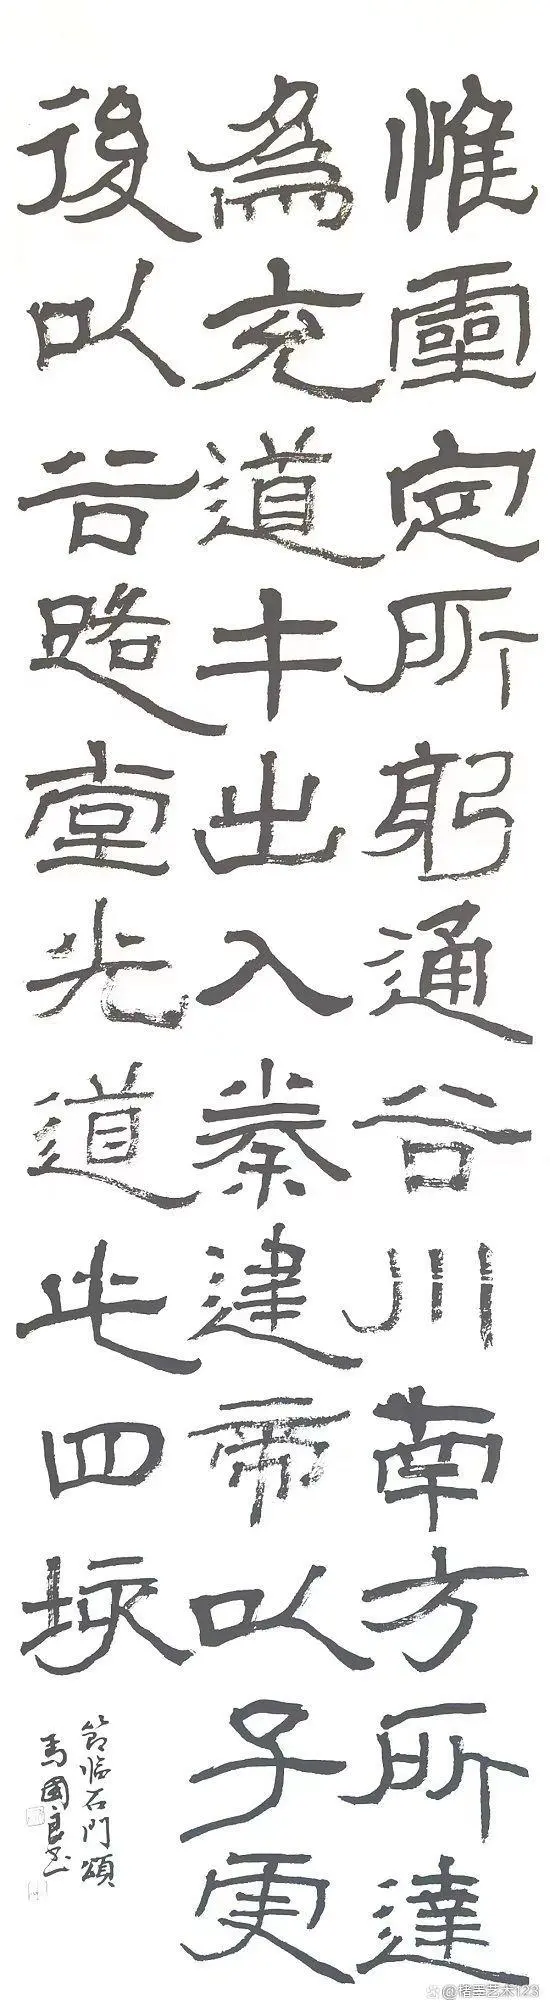 惟靈定所躬通谷川南方所達
為充道牛出入秦建帝以子更
後以谷路堂光道此四球
節臨石門頌
馬國良书
@楮墨艺术123